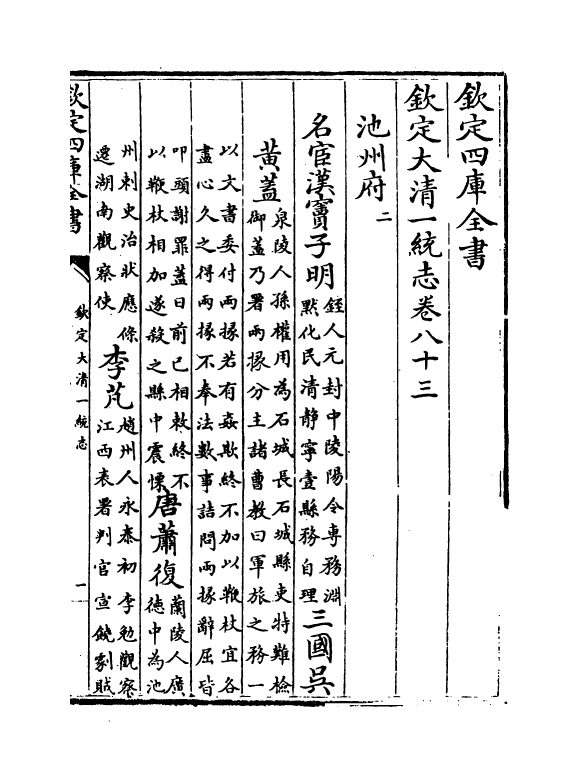 欽定四庫全書
欽定大清一統志卷八十三
池州府二
名宦漢竇子明
銍人元封中陵陽令專務淵
黙化民清静寧壹縣務自理
三國吳
黄蓋
泉陵人孫權用為石城長石城縣吏特難檢
御蓋乃署兩掾分主諸曹教曰軍旅之務一
以文書委付兩掾若有姦欺終不加以鞭杖宜各
盡心久之得兩掾不奉法數事詰問兩掾辭屈皆
叩頭謝罪蓋曰前已相敕終不
以鞭杖相加遂殺之縣中震慄
唐蕭復
蘭陵人廣
德中為池
州刺史治狀應條
遷湖南觀察使
李芃
趙州人永泰初李勉觀察
江西表署判官宣饒劇賊
欽定四庫全書
欽定大清一統志
一